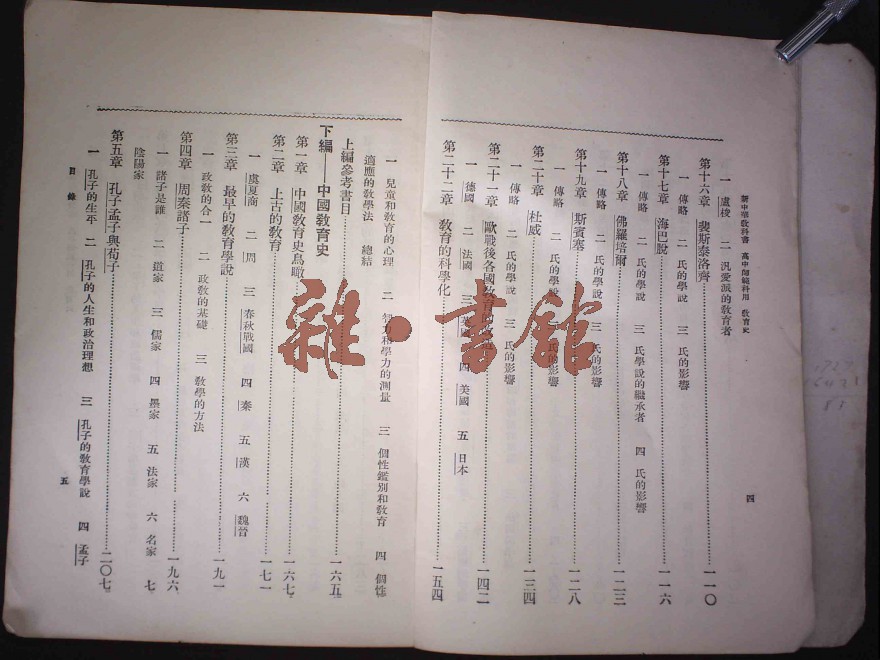 新中華教科書 高中師範科用 教育史
四
一 盧梭 二 汎愛派的教育者
第十六章 裴斯泰洛齊……一一〇
一 傳略 二 氏的學說 三 氏的影響
第十七章 海巴脫……一一六
一 傳略 二 氏的學說 三 氏學說的繼承者 四 氏的影響
第十八章 佛羅培爾……一二三
一 傳略 二 氏的學說 三 氏的影響
第十九章 斯賓塞……一二八
一 傳略 二 氏的學說 三 氏的影響
第二十章 杜威……一三四
一 傳略 二 氏的學說 三 氏的影響
第二十一章 歐戰後各國教育……一四二
一 德國 二 法國 三 四 美國 五 日本
第二十二章 教育的科學化……一五四
一 兒童和教育的心理 二 智力和學力的測量 三 個性鑑別和教育 四 個性
適應的教學法 總結
上編參考書目……一六五
下編——中國教育史
第一章 中國教育史鳥瞰……一六七
第二章 上古的教育……一七一
一 虞夏商 二 周 三 春秋戰國 四 秦 五 漢 六 魏晉
第三章 最早的教育學說……一九一
一 政教的合一 二 政教的基礎 三 教學的方法
第四章 周秦諸子……一九六
一 諸子是誰 二 道家 三 儒家 四 墨家 五 法家 六 名家 七
陰陽家
第五章 孔子孟子與荀子……二〇七
一 孔子的生平 二 孔子的人生和政治理想 三 孔子的教育學說 四 孟子
目錄
五
雜·書館